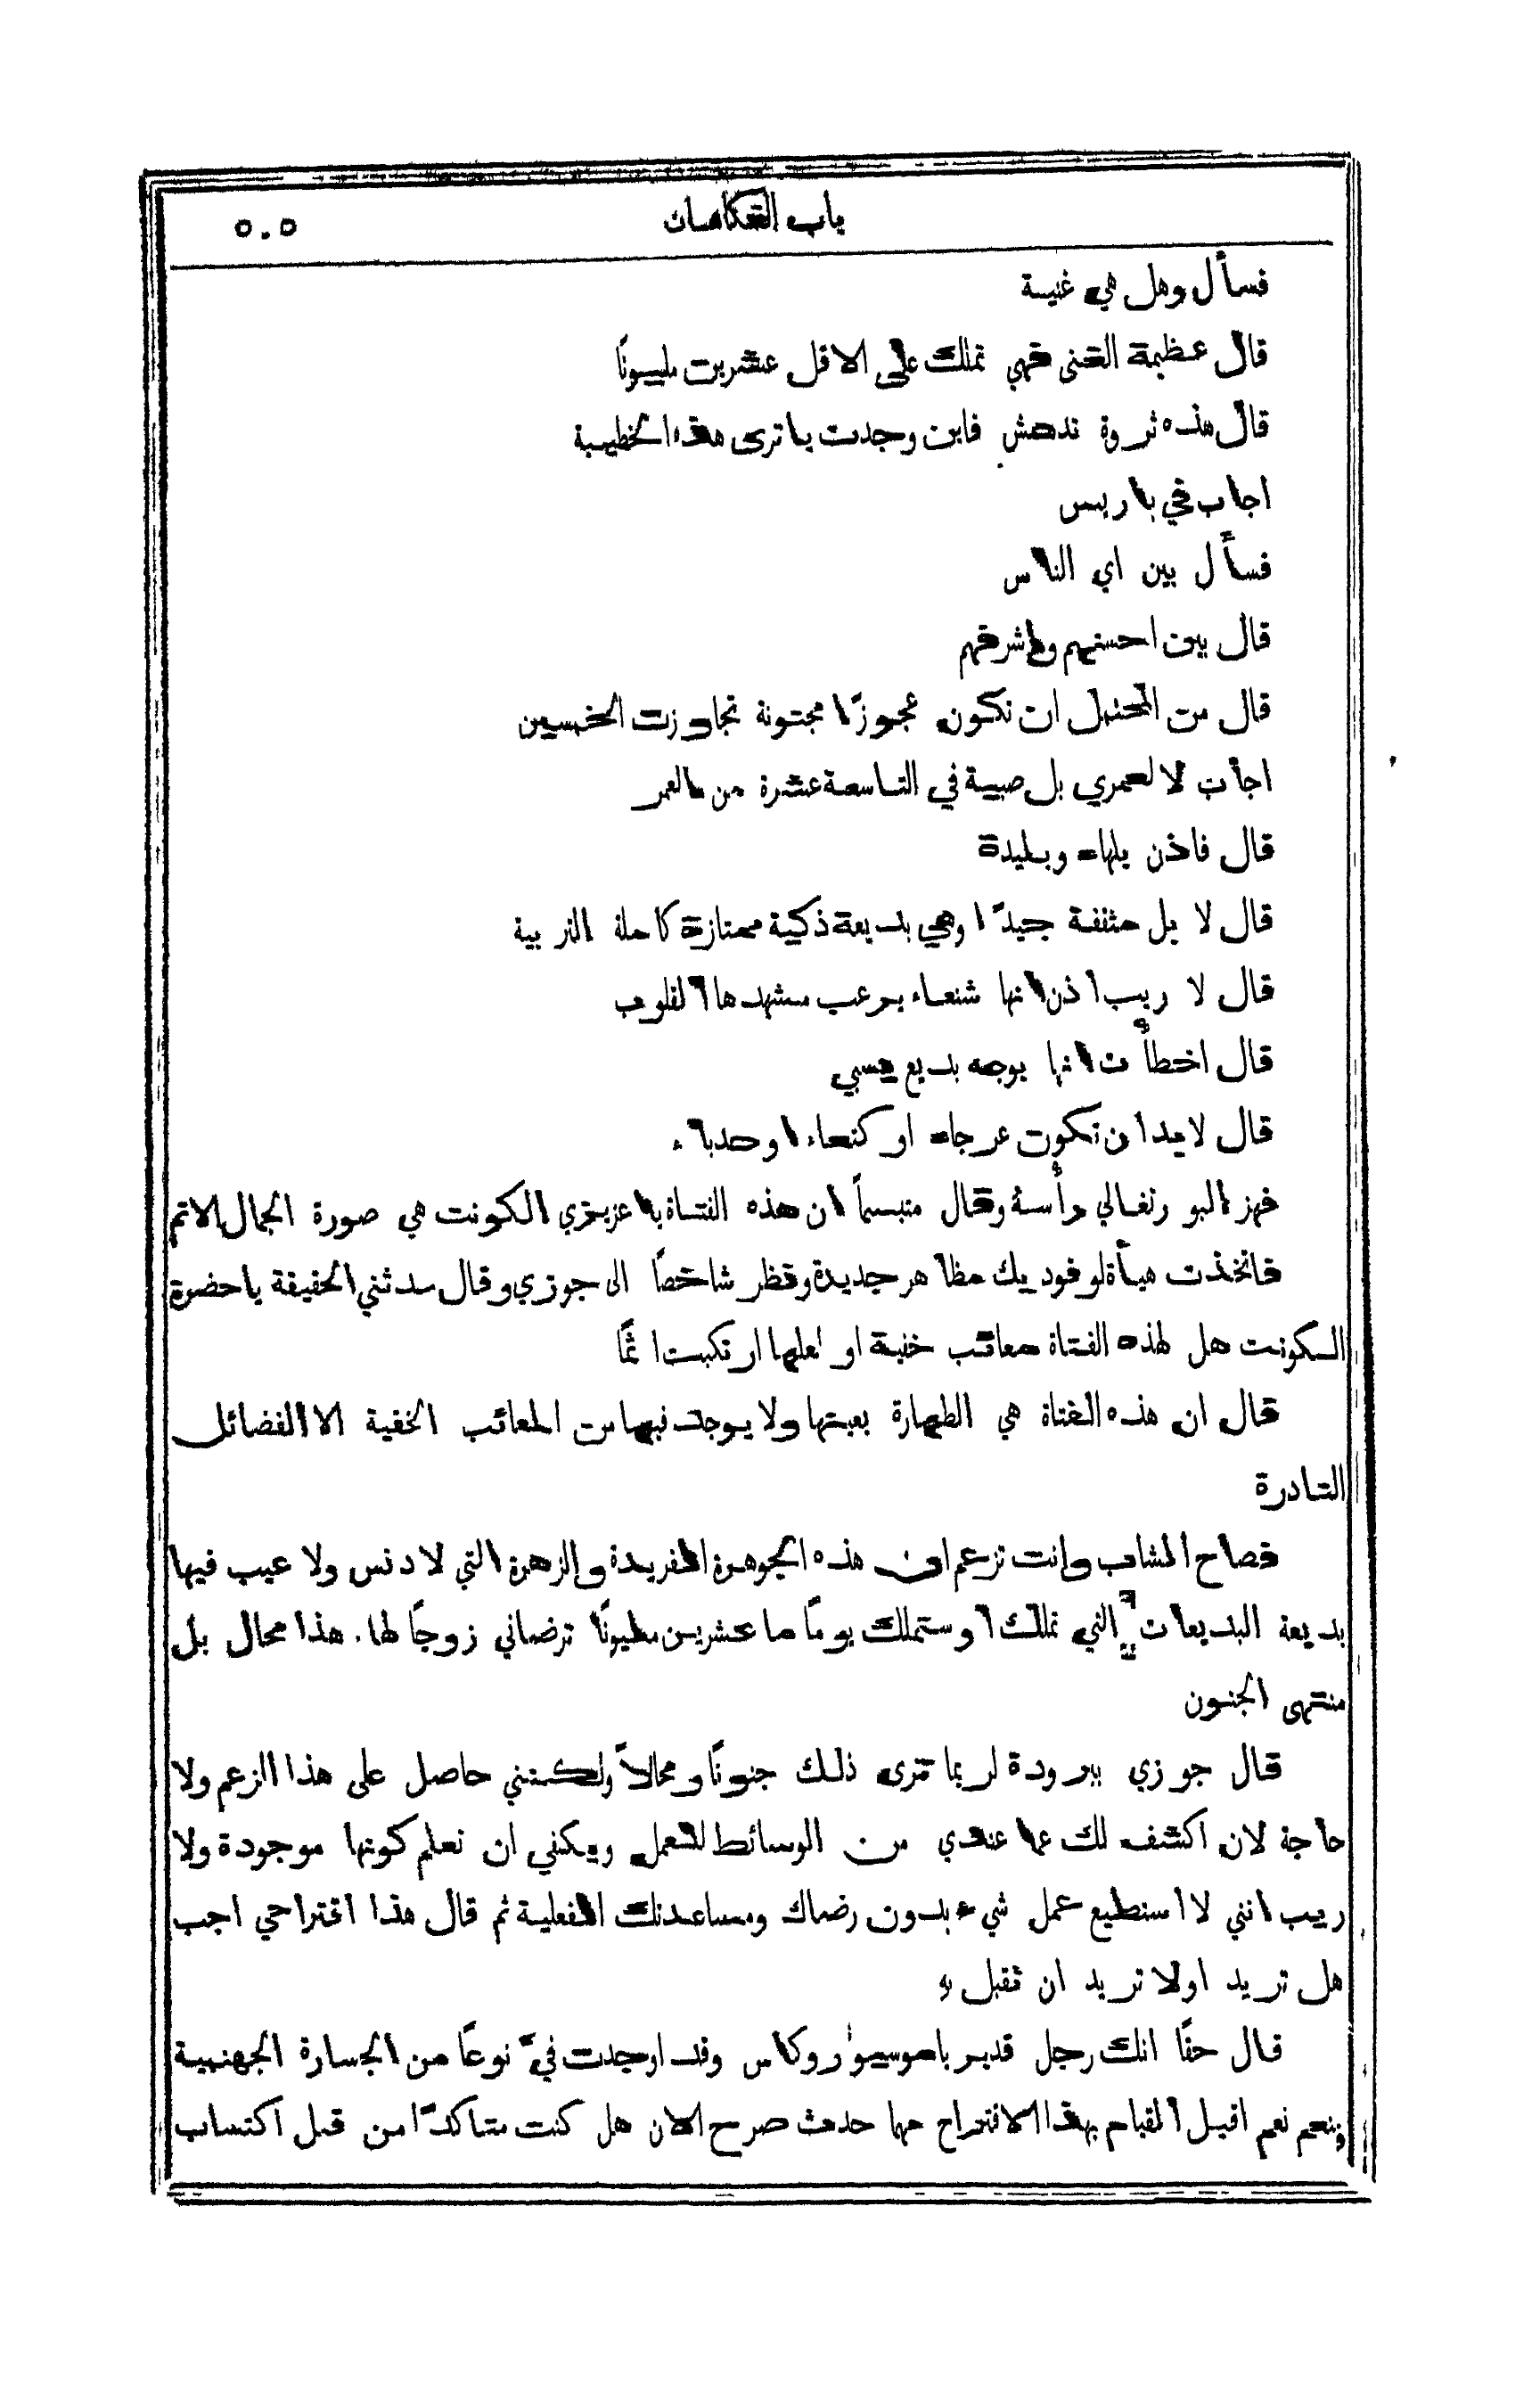 باب الفكاهات ٥٠٥
فسأل وهل هي غنية
قال عظيمة الغنى فهي تملك على الاقل عشرين مليونًا
قال هذه ثروة تدهش فاين وجدت يا ترى هذه الخطيبة
اجاب في باريس
فسأل بين اي الناس
قال بين احسنهم واشرفهم
قال من المحتمل ان تكون عجوزًا مجنونة تجاوزت الخمسين
اجاب لا لعمري بل صبية في التاسعة عشرة من العمر
قال فاذن بلهاء وبليدة
قال لا بل مثقفة جيدًا وهي بديعة ذكية ممتازة كاملة التربية
قال لا ريب اذن انها شنعاء يرعب مشهدها القلوب
قال اخطأت انها بوجه بديع يسبي
قال لا بد ان تكون عرجاء او كنعاء او حدباء
فهز البورتغالي رأسه وقال متبسماً ان هذه الفتاة يا عزيزي الكونت هي صورة الجمال الاتم
فاتخذت هيأة لوفوديك مظاهر جديدة ونظر شاخصًا الى جوزي وقال حدثني الحقيقة يا حضرة
الكونت هل لهذه الفتاة معائب خفية او لعلها ارتكبت اثمًا
قال ان هذه الفتاة هي الطهارة بعينها ولا يوجد فيها من المعائب الخفية الا الفضائل
النادرة
فصاح الشاب وانت تزعم ان هذه الجوهرة الفريدة والزهرة التي لا دنس ولا عيب فيها
بديعة البديعات التي تملك او ستملك يومًا ما عشرين مليونًا ترضاني زوجًا لها . هذا محال بل
منتهى الجنون
قال جوزي ببرودة لربما ترى ذلك جنونًا ومحالاً ولكنني حاصل على هذا الزعم ولا
حاجة لان اكشف لك عما عندي من الوسائط للعمل ويكفي ان تعلم كونها موجودة ولا
ريب انني لا استطيع عمل شيء بدون رضاك ومساعدتك الفعلية ثم قال هذا اقتراحي اجب
هل تريد او لا تريد ان تقبل به
قال حقًا انك رجل قدير يا موسيو روكاس وقد اوجدت فيّ نوعًا من الجسارة الجهنمية
فنعم نعم اقبل القيام بهذا الاقتراح مهما حدث صرح الان هل كنت متاكدًا من قبل اكتساب